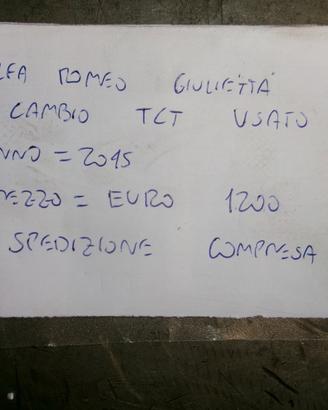 LFA ROMEO GIULIETTA
CAMBIO TCT USATO
NNO = 2015
REZZO = EURO 1200
SPEDIZIONE COMPRESA